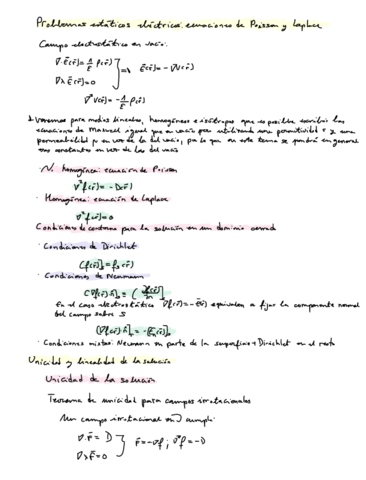 Problemas estáticos eléctricos: ecuaciones de Poisson y Laplace
Campo electrostático en vacío:
∇·Ē(r̄)=1/ε ρ(r̄)
∇×Ē(r̄)=0
⇒ Ē(r̄)=-∇V(r̄)
∇²V(r̄)=-1/ε ρ(r̄)
Veremos para medios lineales, homogéneos e isótropos que es posible escribir las
ecuaciones de Maxwell igual que en vacío pero utilizando una permitividad ε y una
permeabilidad μ en vez de la del vacío, por lo que en este tema se pondrá en general
las constantes en vez de las del vacío
homogénea: ecuación de Poisson
∇²f(r̄)=-D(r̄)
· Homogénea: ecuación de Laplace
∇²f(r̄)=0
Condiciones de contorno para la solución en un dominio cerrado
· Condiciones de Dirichlet
[f(r̄)]s=fs(r̄)
· Condiciones de Neumann
En el caso electrostático ∇f(r̄)=-Ē(r̄) equivalen a fijar la componente normal
del campo sobre S
· Condiciones mixtas: Neumann en parte de la superficie + Dirichlet en el resto
Unicidad y linealidad de la solución
Unicidad de la solución
Teorema de unicidad para campos irrotacionales
Un campo irrotacional en cumple:
∇·F̄=D
∇×F̄=0
F̄=-∇f; ∇²f=-D